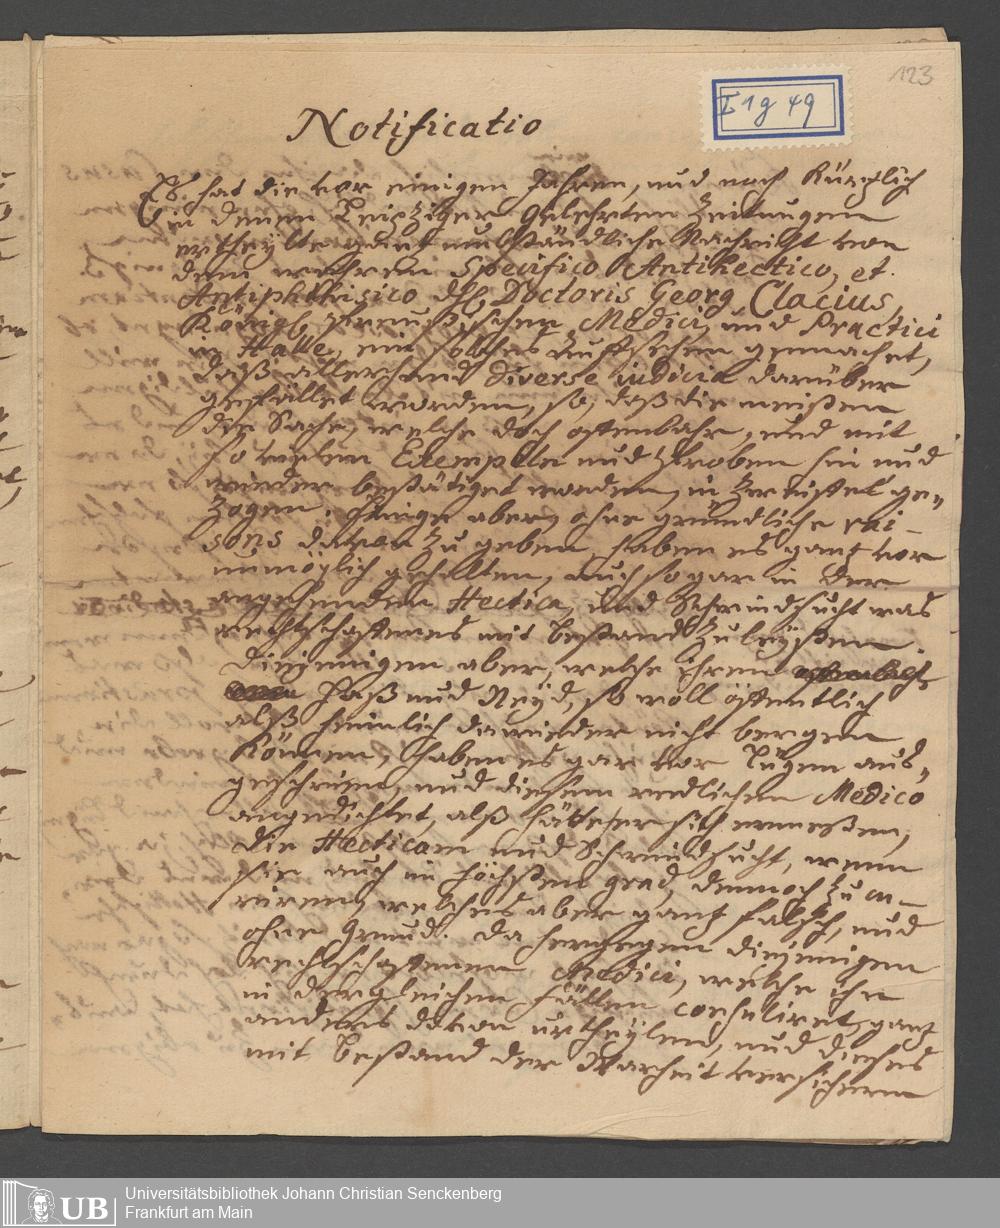 123
I 1 g 49
Notificatio
Es hat die vor einigen Jahren, und noch kürzlich
in denen Leipziger gelehrten Zeitungen
ertheylte gantz umbständliche Nachricht von
dem wahren Specifico Antihectico, et
Antiphthisico des Doctoris Georg Clacius,
Königl. Preußischen Medici, und Practici
in Halle, ein solches Auffsehen gemachet,
daß allerhand diverse iudicia darüber
gefället worden, so, daß die meisten
die Sache, welche doch offenbahr, und mit
so vielen Exempeln und Proben hin und
wieder bestätiget worden, in Zweiffel ge-
zogen. Einige aber, ohne gründliche rai-
sons davon zu geben, haben es gantz vor
unmöglich gehalten, auch so gar in der
angehenden Hectica, und Schwindsucht was
rechtschaffenes mit Bestand zu leysten.
Diejenigen aber, welche ihren
Haß und Neyd, so woll offentlich
alß heimlich dawieder nicht bergen
können, haben es gar vor Lügen aus-
geschrien, und diesem redlichen Medico
angedichtet, alß hätte er sich vermeßen,
die Hecticam und Schwindsucht, wenn
sie auch im höchsten grad, dennoch zu cu-
riren, welches aber gantz falsch, und
ohne Grund. Da hergegen diejenigen
rechtschaffenen Medici, welche ihn
in dergleichen Fällen consuliret, gantz
anders davon urtheylen, und dieses
mit Bestand der Warheit versichern
UB
Universitätsbibliothek Johann Christian Senckenberg
Frankfurt am Main